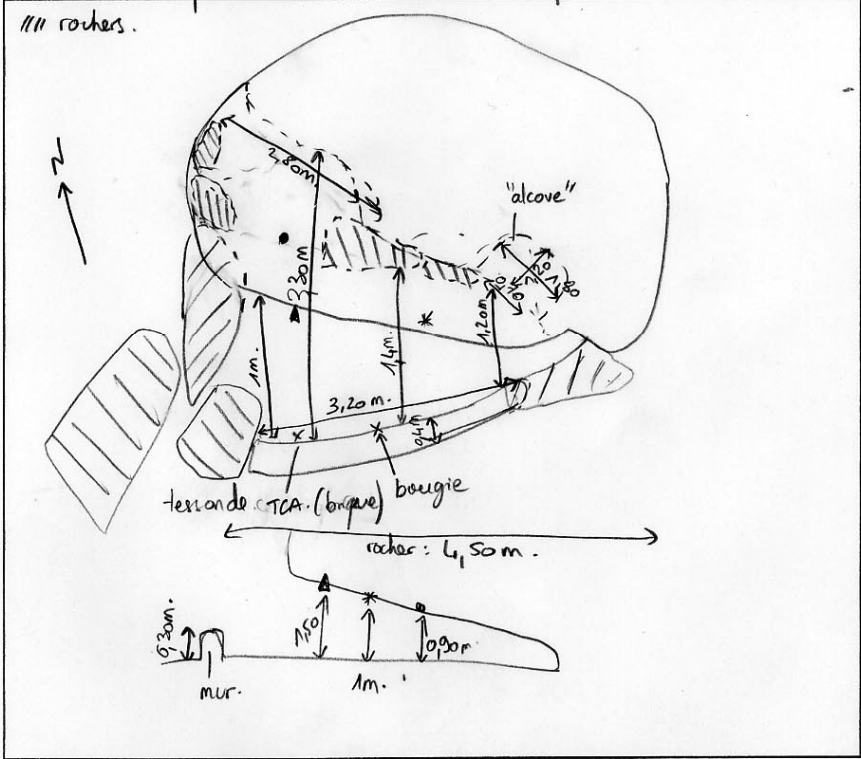 //// rochers.
N
2,80m.
"alcove"
3,30m
1,20
1,80
1m.
1,4m.
1,20m
3,20m.
0,4m
tesson de TCA. (brique)
bougie
rocher : 4,50m.
0,30m.
1,50
0,90m
mur.
1m.